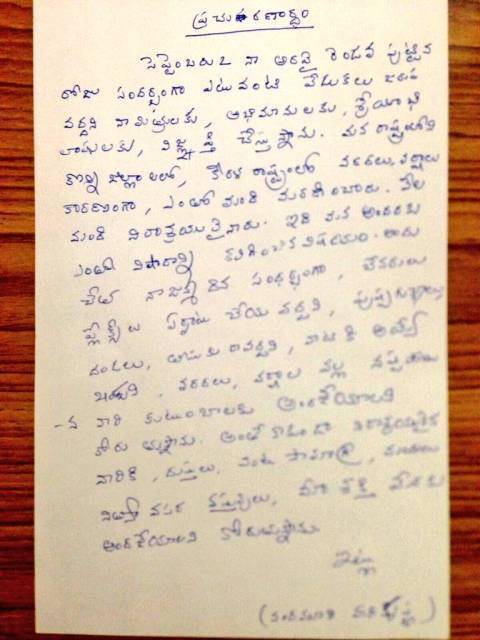 ప్రచురణార్థం
సెప్టెంబరు 2 నా అరవై రెండవ పుట్టిన
రోజు సందర్భంగా ఎటువంటి వేడుకలు జరుప
వద్దని నా మిత్రులకు, అభిమానులకు, శ్రేయోభి
లాషులకు, విజ్ఞప్తి చేస్తున్నాను. మన రాష్ట్రంలోని
కొన్ని జిల్లాలలో, కేరళ రాష్ట్రంలో వరదలు, వర్షాలు
కారణంగా, ఎంతో మంది మరణించారు. వేల
మంది నిరాశ్రయులైనారు. ఇది మన అందరకు
ఎంతో విషాదాన్ని కలిగించిన విషయం. అందు
చేత నా జన్మదిన సందర్భంగా, బేనర్లు
ఫ్లెక్సీలు ఏర్పాటు చేయవద్దని, పుష్పగుచ్ఛాలు,
దండలు, తీసుకు రావద్దని, వాటికి అయ్యే
ఖర్చుని, వరదలు, వర్షాల వల్ల నష్టపోయి
-న వారి కుటుంబాలకు అందచేయాలని
కోరుచున్నాను. అంతే కాకుండా నిరాశ్రయులైన
వారికి, దుస్తులు, వంట సామాగ్రి, మందులు
నిత్యావసర వస్తువులు, మీ శక్తి మేరకు
అందచేయాలని కోరుచున్నాను
ఇట్లు
(నందమూరి హరికృష్ణ)